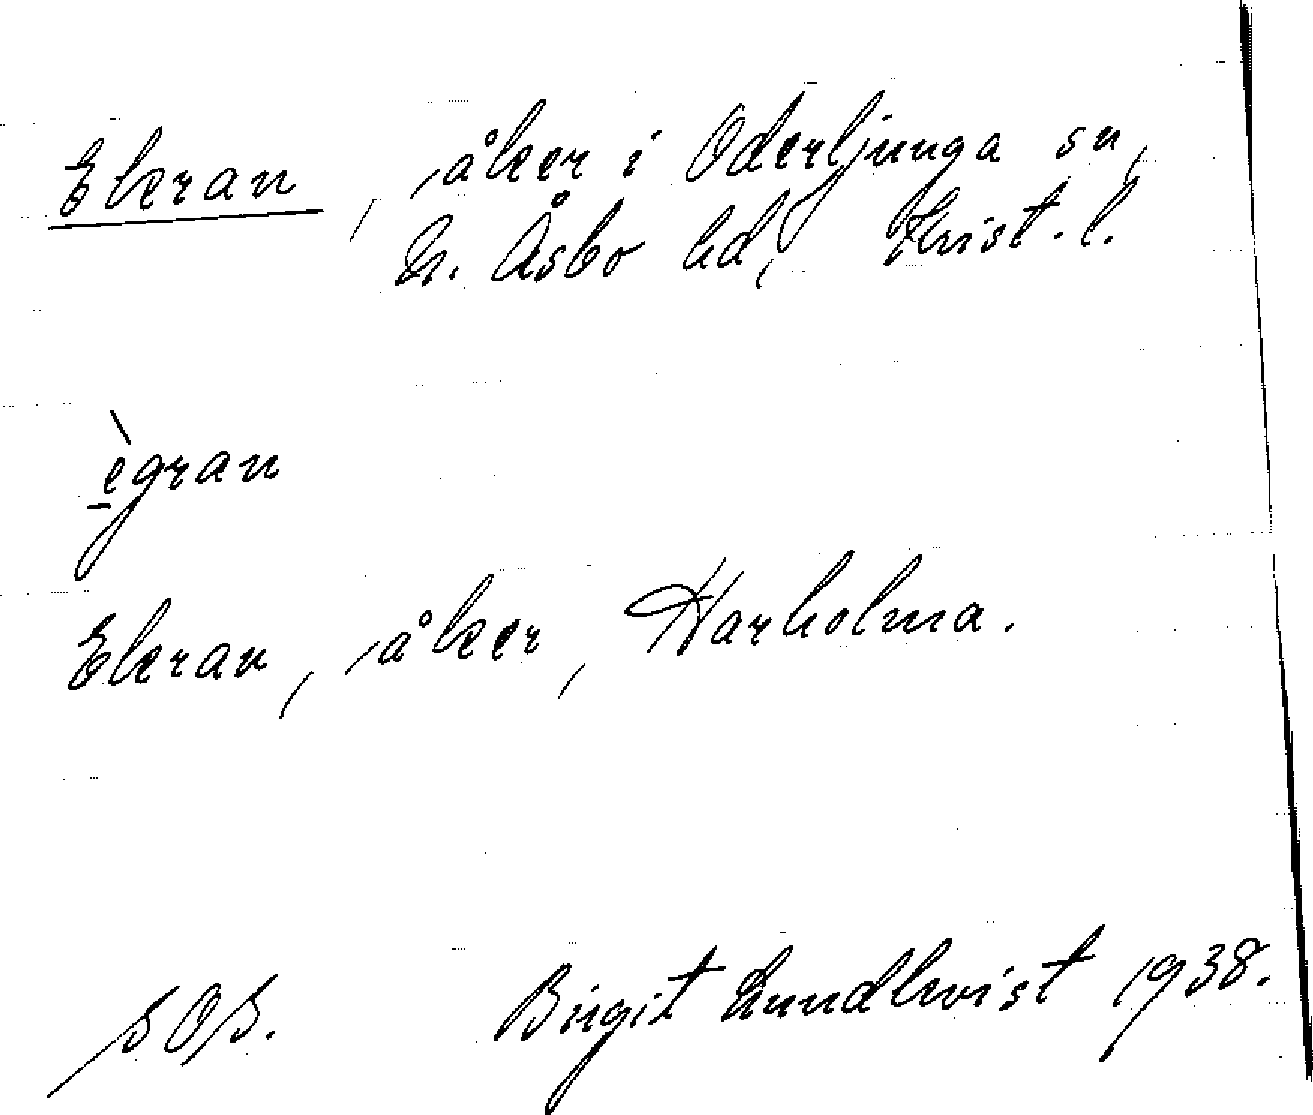 Ekran, åker i Oderljunga sn,
N. Åsbo hd, Krist. l.
ègran
Ekran, åker, Harholma.
SOS. Birgit Lundkvist 1938.